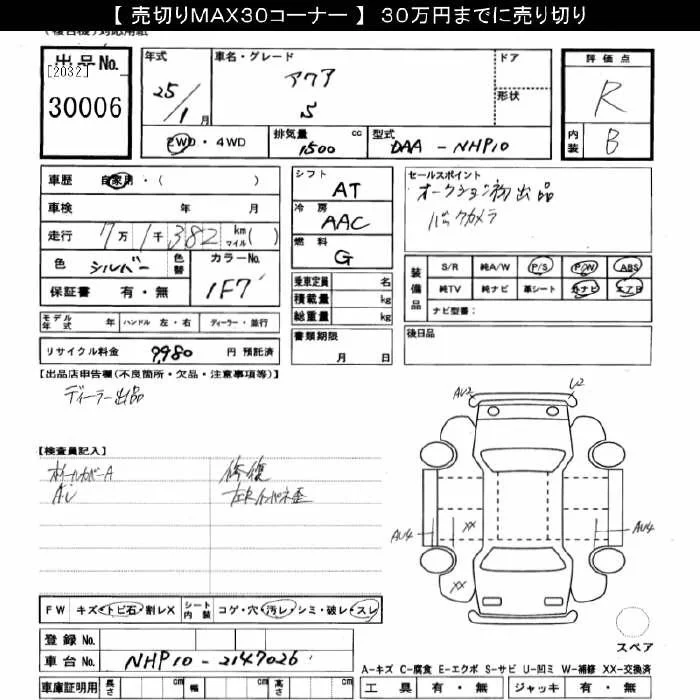 【 売切りMAX30コーナー 】 30万円までに売り切り
出品No.
[2032]
30006
年式
25/1月
車名・グレード
アクア
S
ドア
形状
評価点
R
内装
B
2WD・4WD
排気量 1500 cc
型式 DAA-NHP10
車歴 自家用・( )
車検 年 月
走行 7万1千382 km マイル( )
色 シルバー 色替
カラーNo. 1F7
保証書 有・無
シフト AT
冷房 AAC
燃料 G
乗車定員 名
積載量 kg
総重量 kg
セールスポイント
オークション初出品
バックカメラ
装備品
S/R 純A/W P/S P/W ABS
純TV 純ナビ 革シート 外ナビ エアB
ナビ型番:
モデル年式 年 ハンドル 左・右 ディーラー・並行
リサイクル料金 9,980 円 預託済
書類期限
月 日
後日品
【出品店申告欄(不良箇所・欠品・注意事項等)】
ディーラー出品
AU2
U2
AU4
AU4
XX
XX
【検査員記入】
ホイールカバーA 修復
AU
FW キズ・トビ石・割レX シート内装 コゲ・穴・汚レ・シミ・破レ・スレ
スペア
登録 No.
車台 No. NHP10-2147026
A-キズ C-腐食 E-エクボ S-サビ U-凹ミ W-補修 XX-交換済
車庫証明用 長さ cm 幅 cm 高さ cm
工具 有・無 ジャッキ 有・無